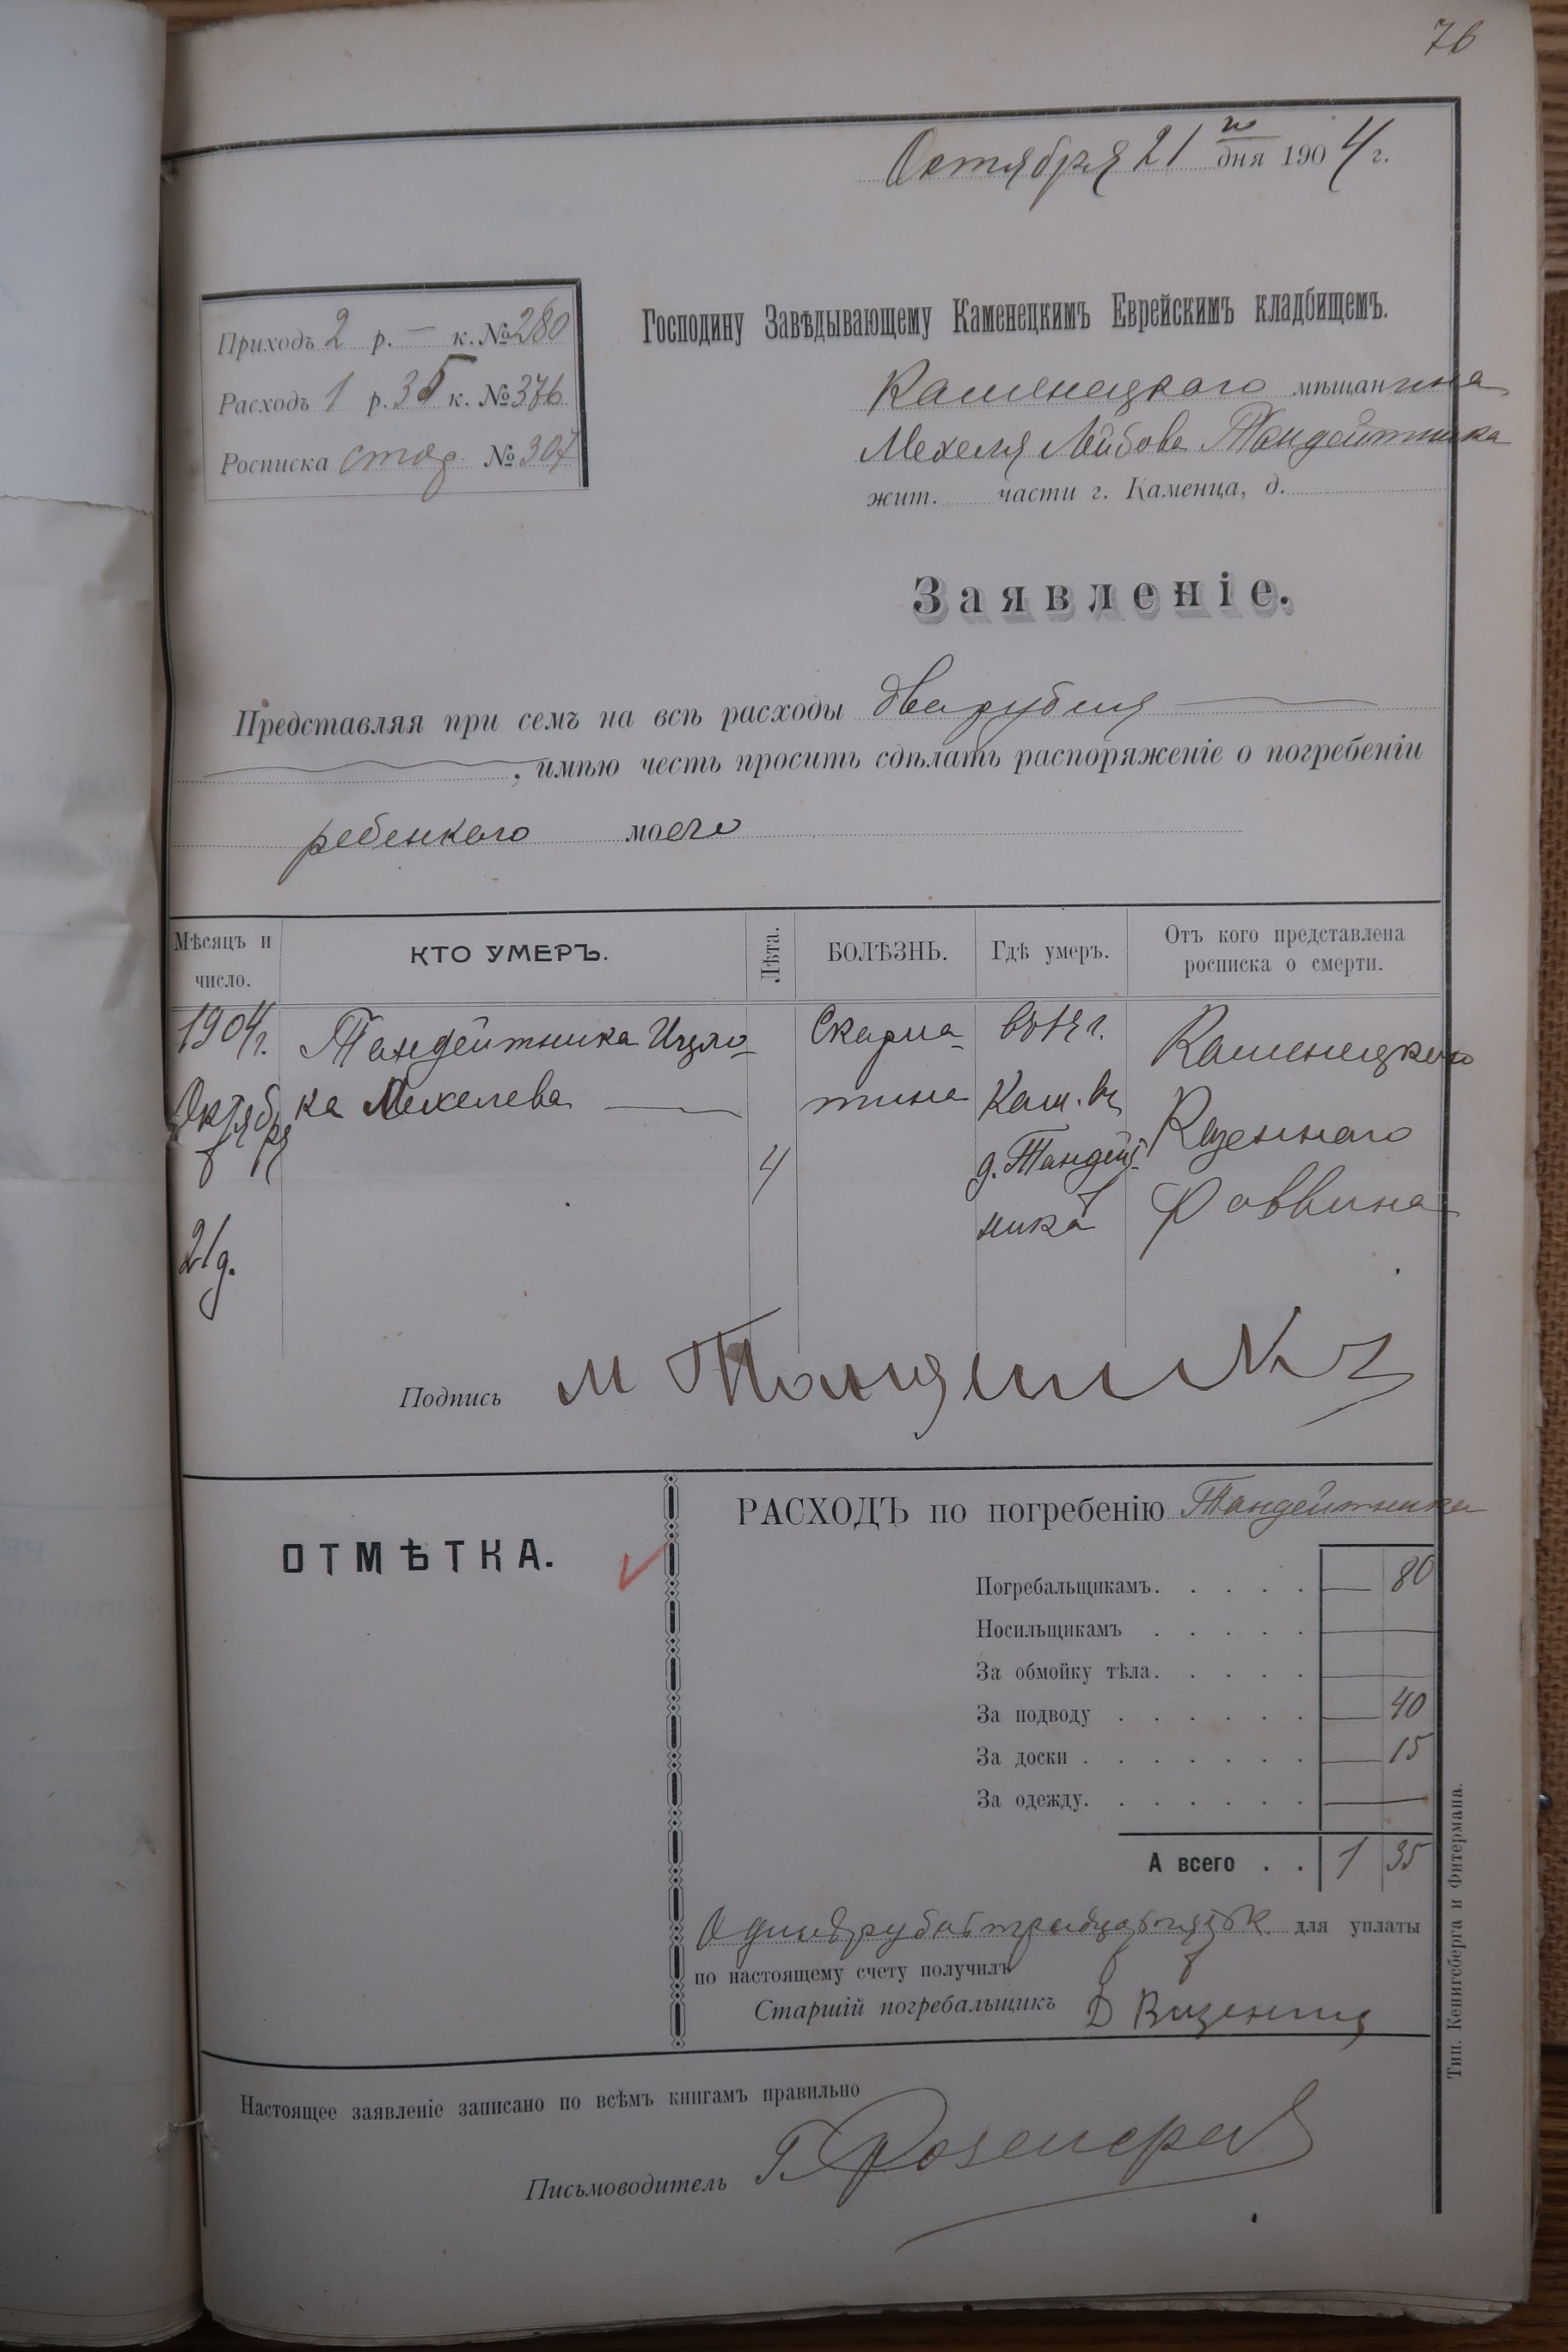 76
Октября 21 го дня 1904 г.
Приходъ 2 р. — к. № 280
Расходъ 1 р. 35 к. № 376
Росписка № 307
Господину Завѣдывающему Каменецкимъ Еврейскимъ кладбищемъ.
Каменецкаго мѣщанина
Мехеля Лейбова Тандейтника
жит. части г. Каменца, д.
Заявленіе.
Представляя при семъ на всѣ расходы два рубля
, имѣю честь просить сдѣлать распоряженіе о погребеніи
ребенкого моего
Мѣсяцъ и число. КТО УМЕРЪ. Лѣта. БОЛѢЗНЬ. Гдѣ умеръ. Отъ кого представлена росписка о смерти.
1904г. Тандейтника Ицко- Скарла- Каменецкаго
Октября ка Мехелева — тина Кам. въ Казеннаго
4 д. Тандейт- Раввина
21 д. ника
Подпись М Тандейтникъ
ОТМѢТКА.
РАСХОДЪ по погребенію Тандейтника
Погребальщикамъ. — 80
Носильщикамъ —
За обмойку тѣла. —
За подводу — 40
За доски — 15
За одежду. —
А всего 1 35
Одинъ рубль тридцать пять к. для уплаты
по настоящему счету получилъ
Старшій погребальщикъ Д
Настоящее заявленіе записано по всѣмъ книгамъ правильно
Письмоводитель Г.
Тип. Кенигсберга и Фитермана.